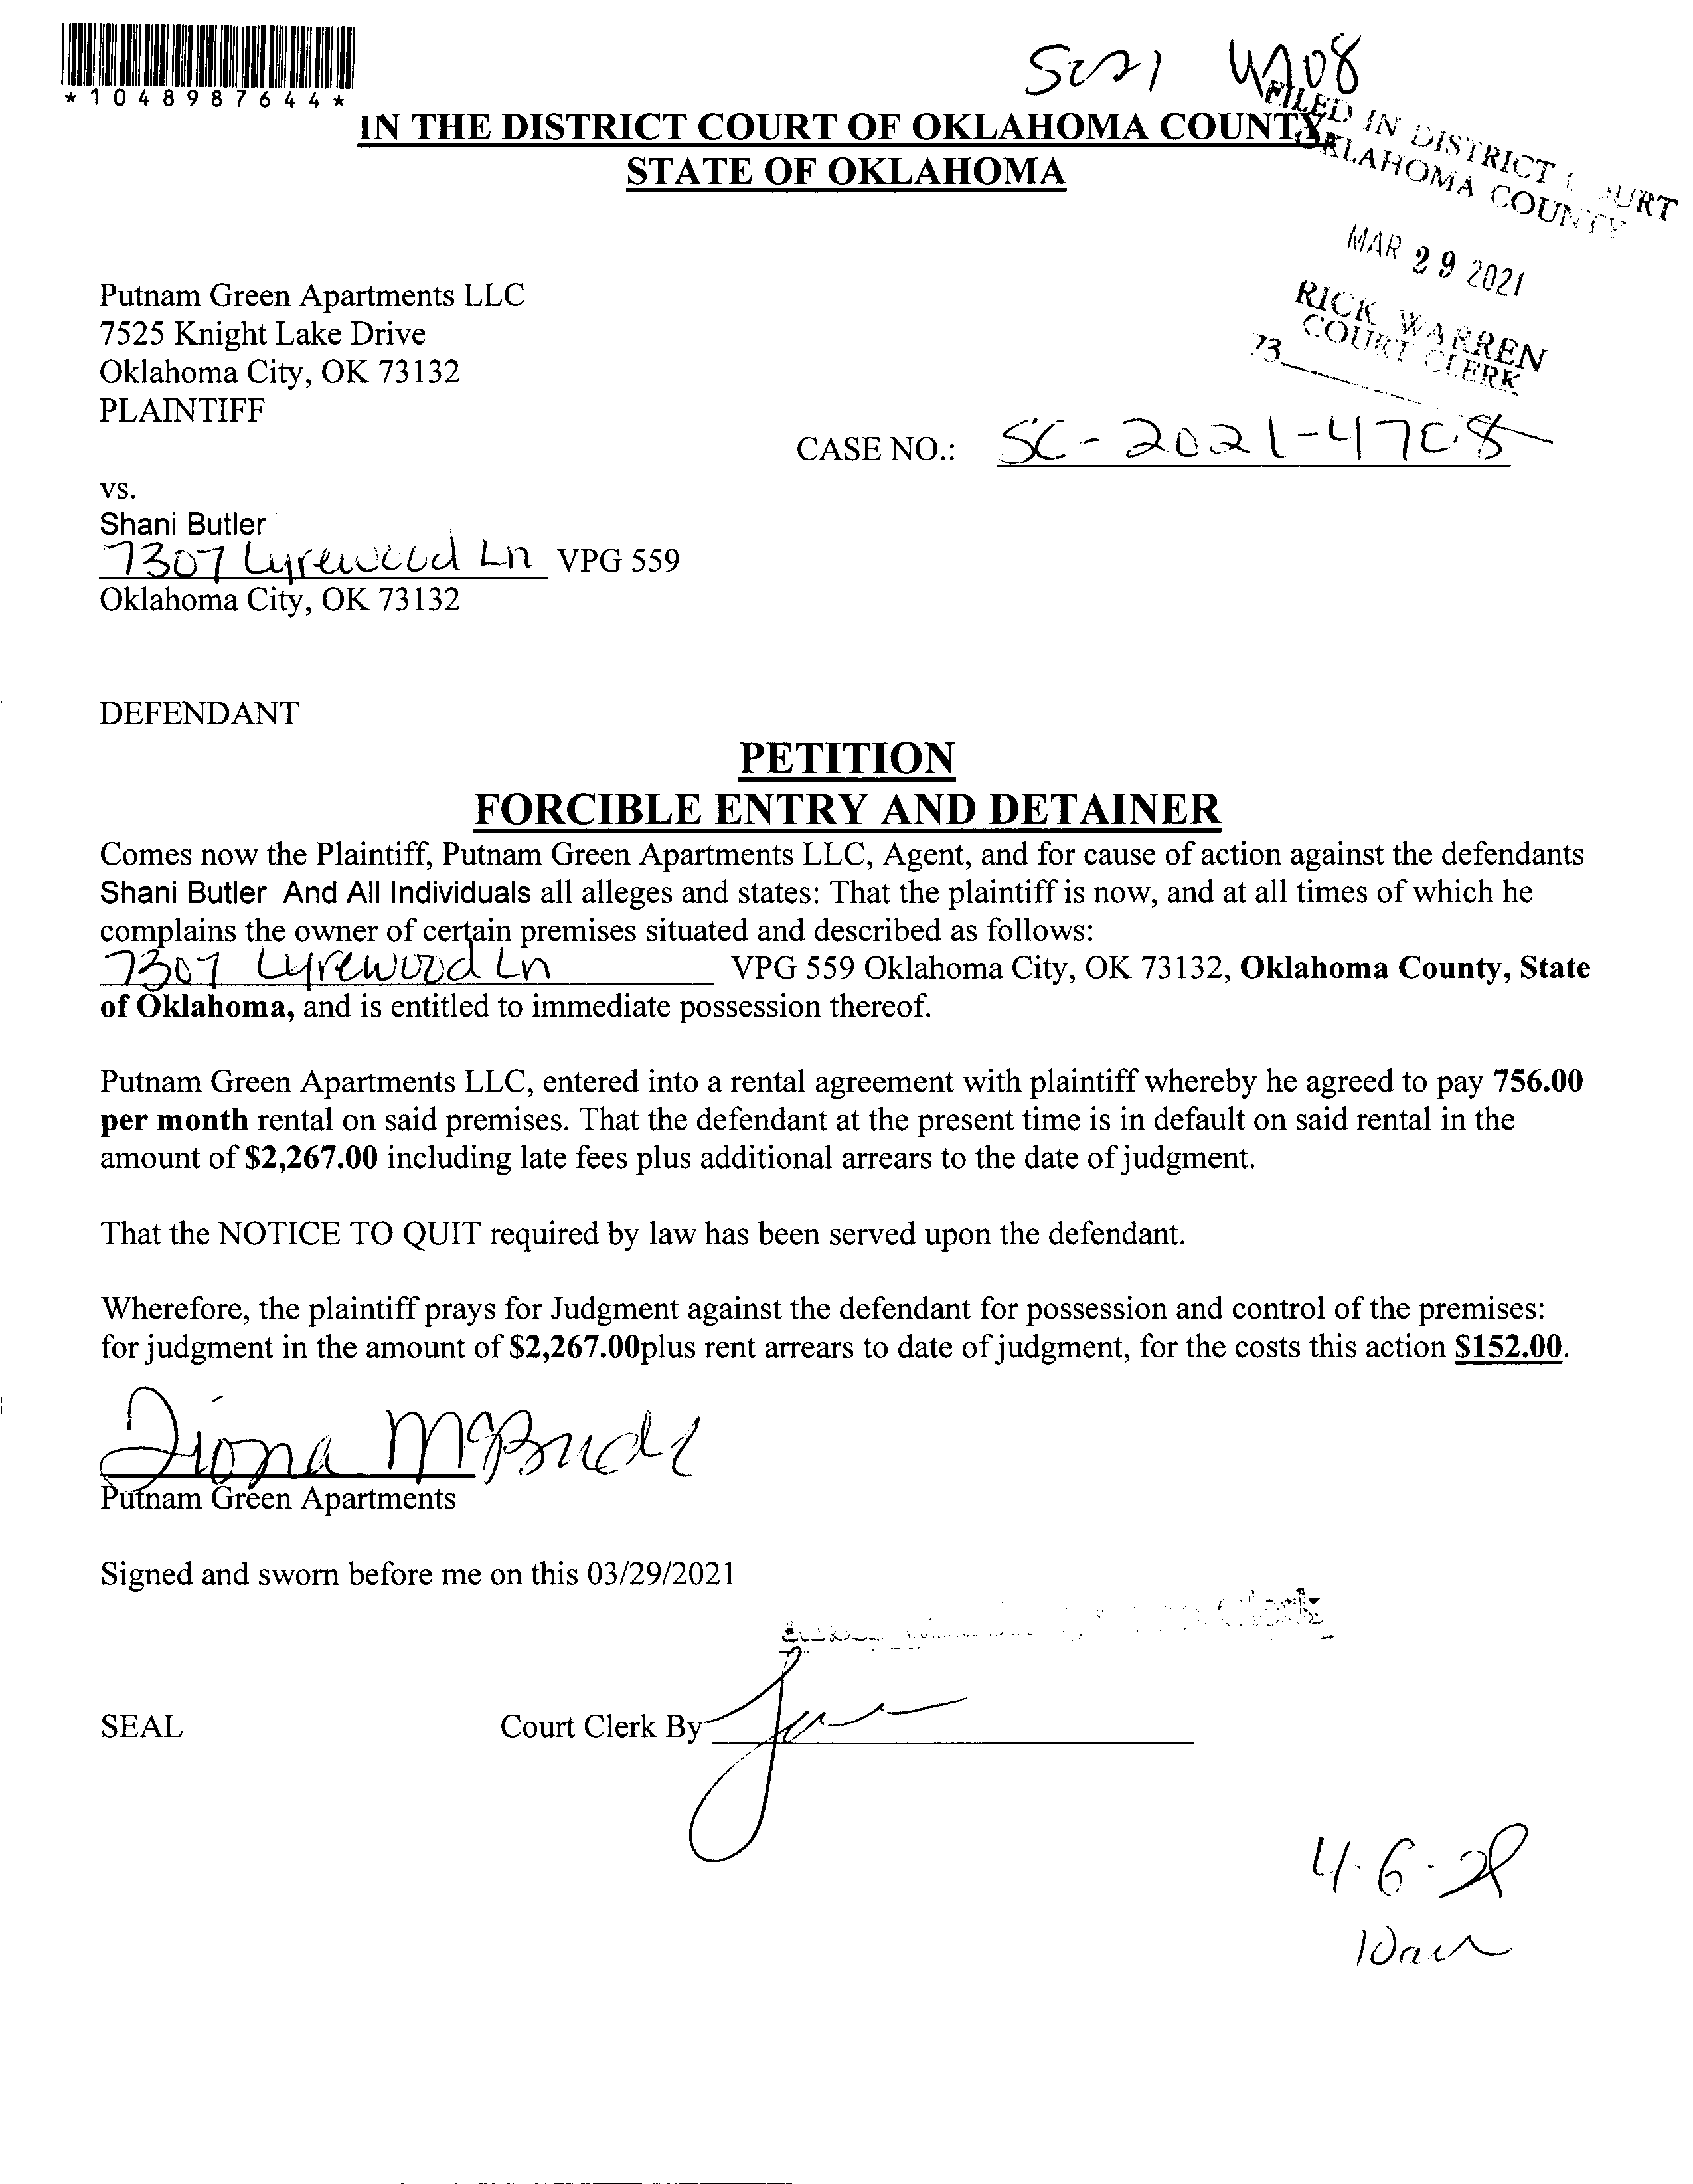 SC21 4708
*1048987644*
IN THE DISTRICT COURT OF OKLAHOMA COUNTY
STATE OF OKLAHOMA
FILED IN DISTRICT COURT
OKLAHOMA COUNTY
MAR 29 2021
RICK WARREN
COURT CLERK
73
Putnam Green Apartments LLC
7525 Knight Lake Drive
Oklahoma City, OK 73132
PLAINTIFF
CASE NO.: SC-2021-4708
vs.
Shani Butler
7307 Lyrewood Ln VPG 559
Oklahoma City, OK 73132
DEFENDANT
PETITION
FORCIBLE ENTRY AND DETAINER
Comes now the Plaintiff, Putnam Green Apartments LLC, Agent, and for cause of action against the defendants
Shani Butler And All Individuals all alleges and states: That the plaintiff is now, and at all times of which he
complains the owner of certain premises situated and described as follows:
7307 Lyrewood Ln VPG 559 Oklahoma City, OK 73132, Oklahoma County, State
of Oklahoma, and is entitled to immediate possession thereof.
Putnam Green Apartments LLC, entered into a rental agreement with plaintiff whereby he agreed to pay 756.00
per month rental on said premises. That the defendant at the present time is in default on said rental in the
amount of $2,267.00 including late fees plus additional arrears to the date of judgment.
That the NOTICE TO QUIT required by law has been served upon the defendant.
Wherefore, the plaintiff prays for Judgment against the defendant for possession and control of the premises:
for judgment in the amount of $2,267.00plus rent arrears to date of judgment, for the costs this action $152.00.
Tiona McBride
Putnam Green Apartments
Signed and sworn before me on this 03/29/2021
Clerk
SEAL Court Clerk By
4-6-21
10am